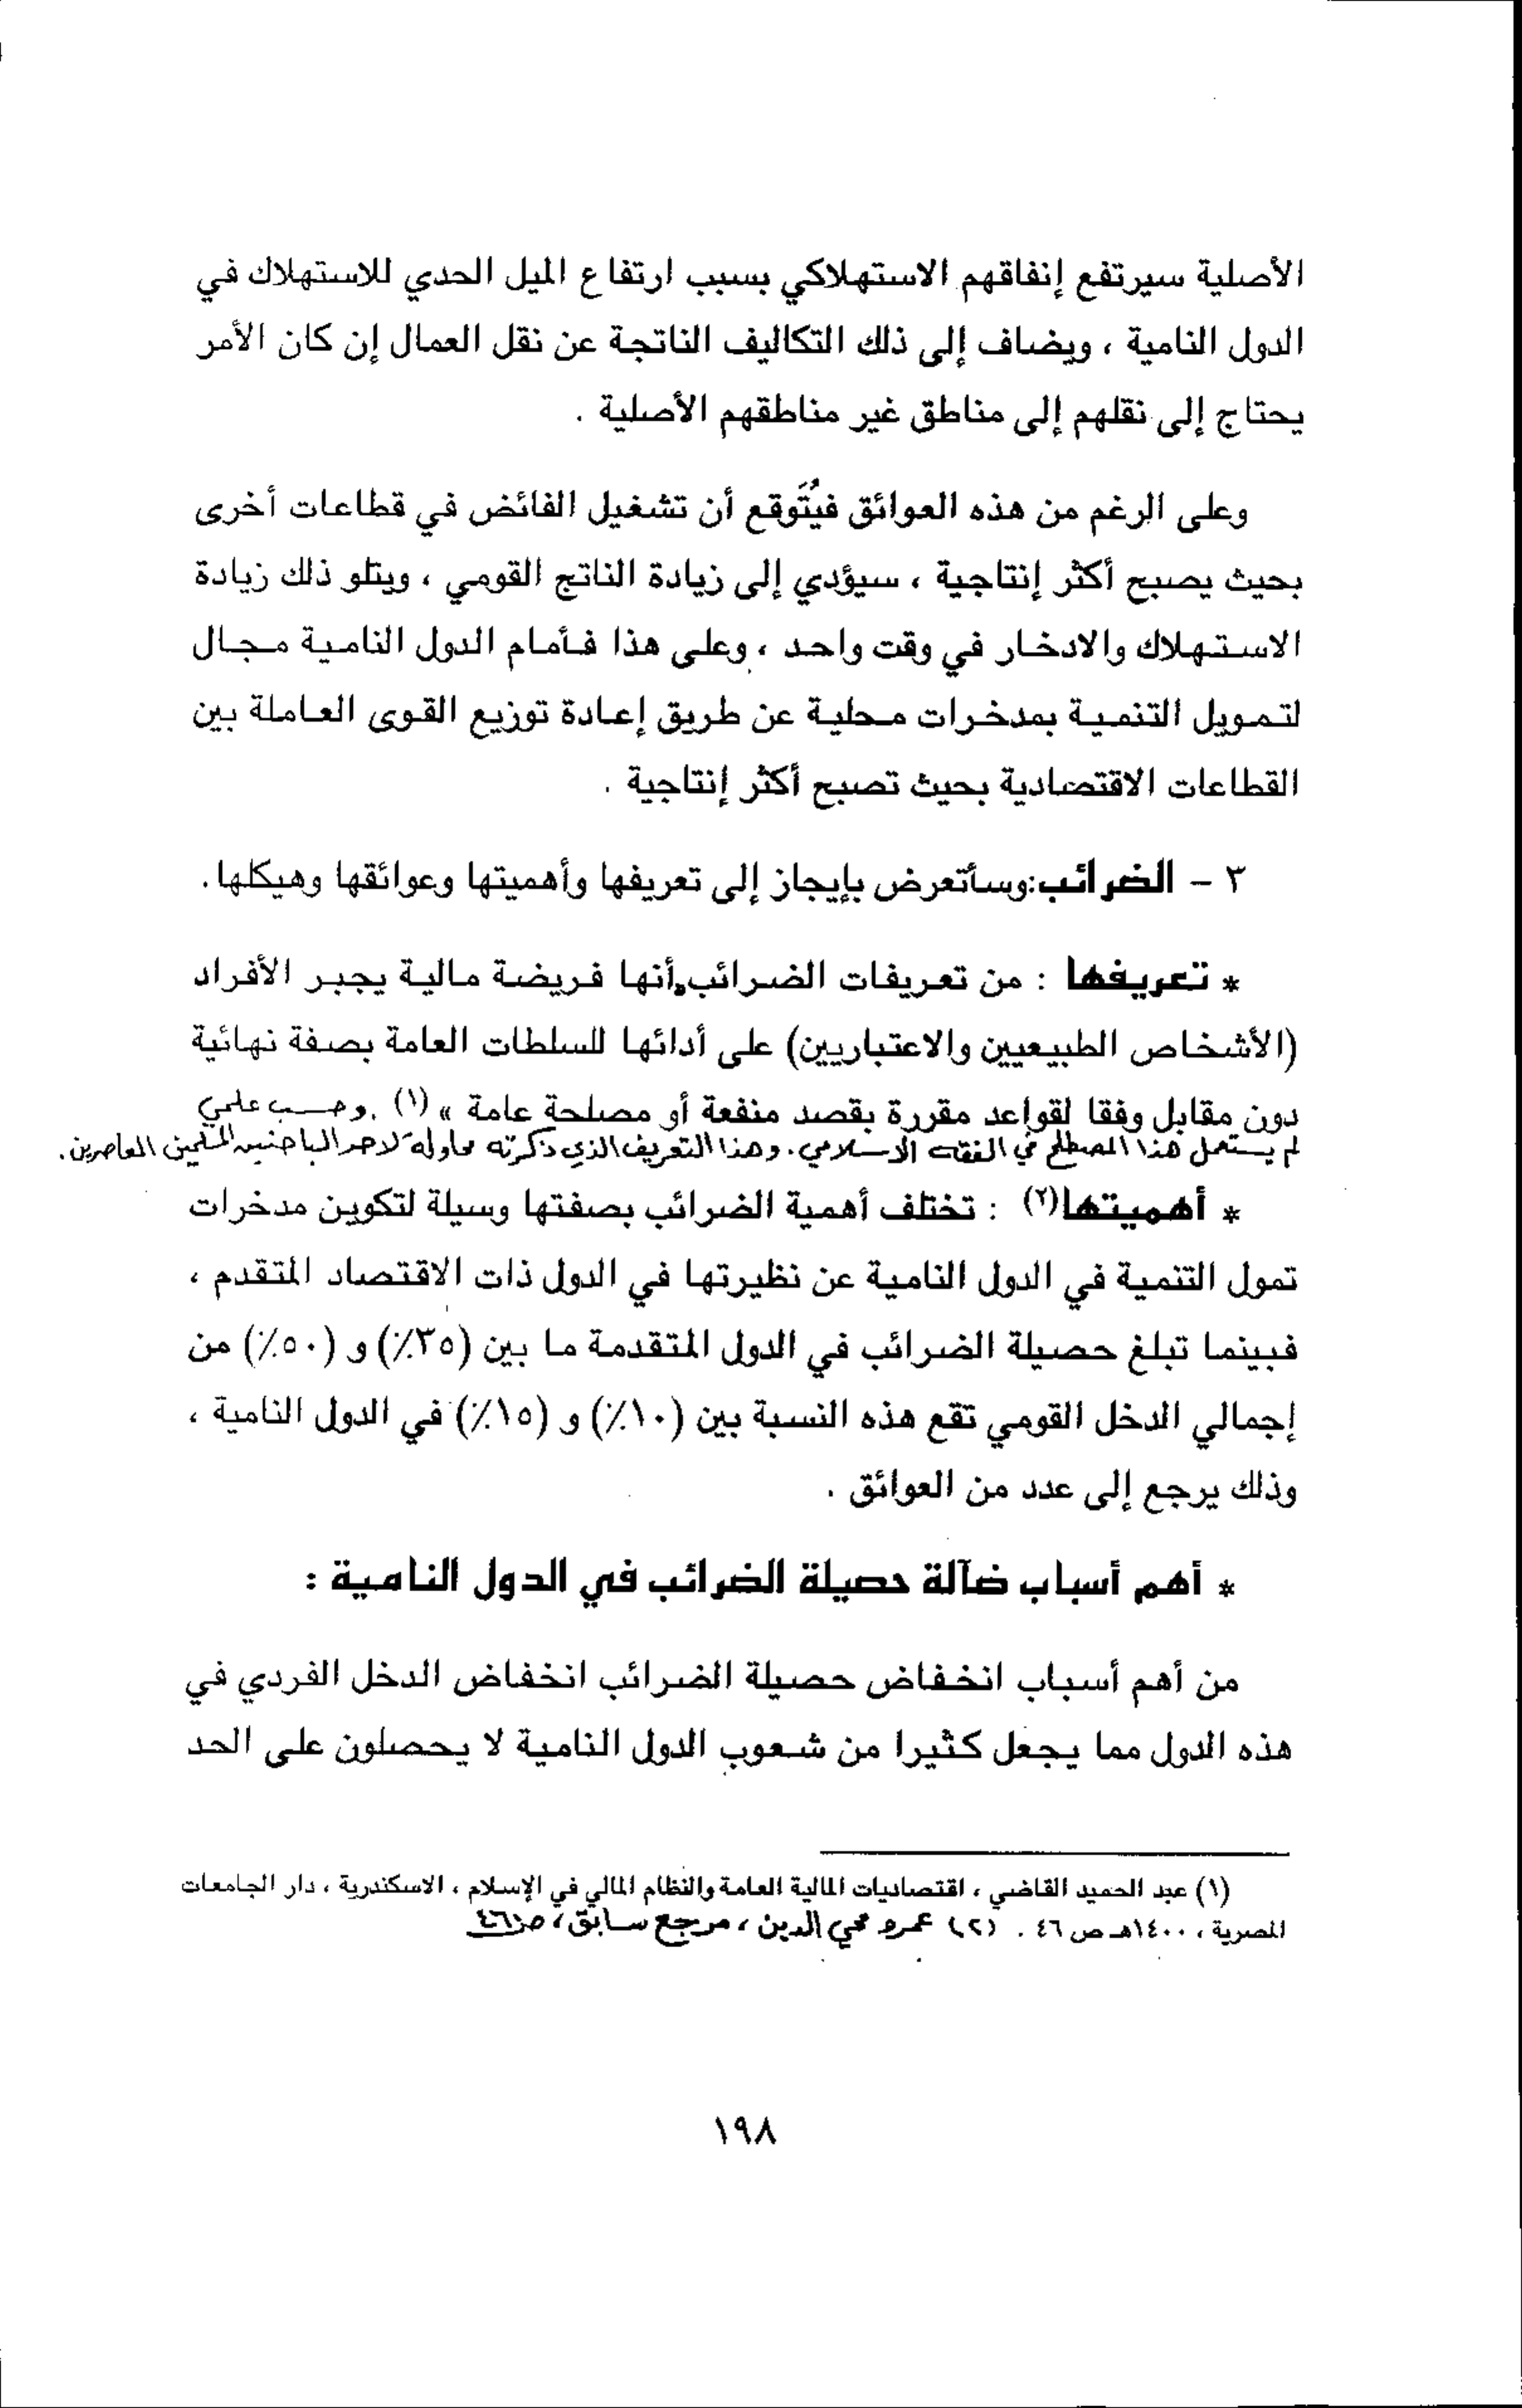 الأصلية سيرتفع إنفاقهم الاستهلاكي بسبب ارتفاع الميل الحدي للاستهلاك في
الدول النامية ، ويضاف إلى ذلك التكاليف الناتجة عن نقل العمال إن كان الأمر
يحتاج إلى نقلهم إلى مناطق غير مناطقهم الأصلية .
وعلى الرغم من هذه العوائق فيُتَوقع أن تشغيل الفائض في قطاعات أخرى
بحيث يصبح أكثر إنتاجية ، سيؤدي إلى زيادة الناتج القومي ، ويتلو ذلك زيادة
الاستهلاك والادخار في وقت واحد ، وعلى هذا فأمام الدول النامية مجال
لتمويل التنمية بمدخرات محلية عن طريق إعادة توزيع القوى العاملة بين
القطاعات الاقتصادية بحيث تصبح أكثر إنتاجية .
٣ - الضرائب:وسأتعرض بإيجاز إلى تعريفها وأهميتها وعوائقها وهيكلها.
* تعريفها : من تعريفات الضرائب أنها فريضة مالية يجبر الأفراد
(الأشخاص الطبيعيين والاعتباريين) على أدائها للسلطات العامة بصفة نهائية
دون مقابل وفقا لقواعد مقررة بقصد منفعة أو مصلحة عامة » (١) .وحسب علمي
لم يستعمل هذا المصطلح في الفقه الإسلامي. وهذا التعريف الذي ذكرته محاولة لأحد الباحثين المسلمين المعاصرين.
* أهميتها(٢) : تختلف أهمية الضرائب بصفتها وسيلة لتكوين مدخرات
تمول التنمية في الدول النامية عن نظيرتها في الدول ذات الاقتصاد المتقدم ،
فبينما تبلغ حصيلة الضرائب في الدول المتقدمة ما بين (٣٥٪) و (٥٠٪) من
إجمالي الدخل القومي تقع هذه النسبة بين (١٠٪) و (١٥٪) في الدول النامية ،
وذلك يرجع إلى عدد من العوائق .
* أهم أسباب ضآلة حصيلة الضرائب في الدول النامية :
من أهم أسباب انخفاض حصيلة الضرائب انخفاض الدخل الفردي في
هذه الدول مما يجعل كثيرا من شعوب الدول النامية لا يحصلون على الحد
(١) عبد الحميد القاضي ، اقتصاديات المالية العامة والنظام المالي في الإسلام ، الاسكندرية ، دار الجامعات
المصرية ، ١٤٠٠هـ ص ٤٦ . (٢) عمرو محي الدين ، مرجع سابق ، ص٤٦٦
١٩٨